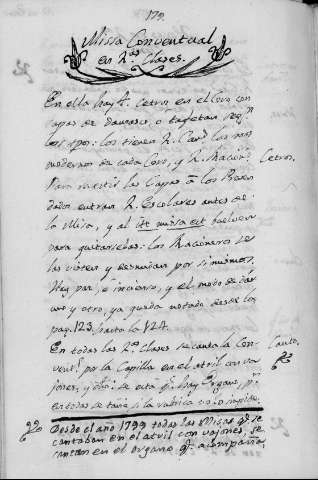 179.
Missa Conventual
en 2.as Clases.
En ella hay 4. Cetros en el Coro con
capas de damasco, o tafetan seg.n
los tpos: los tienen 2. Card. los mas
modernos de cada Coro, y 2. Racion.s
Cetros.
Para vestir las Capas à los Preben
dados entran 2. Escolares antes de
la Misa, y al itè missa est buelven
para quitarselas: los Racioneros se
las visten y desnudan por si mismos.
Hay paz, è incienso, y el modo de dar
uno y otro, ya queda notado desde la
pag. 123. hasta la 124.
En todas las 2.as Clases se canta la Con-
Canto.
vent.l por la Capilla en el atril con va-
jones, y
hay Organo, p.r
en todas se tañe si la rubrica no lo impide.
Desde el año 1799 todas las Misas q.e se
cantaban en el atril con vajones, se
cantan en el organo q.e acompaña